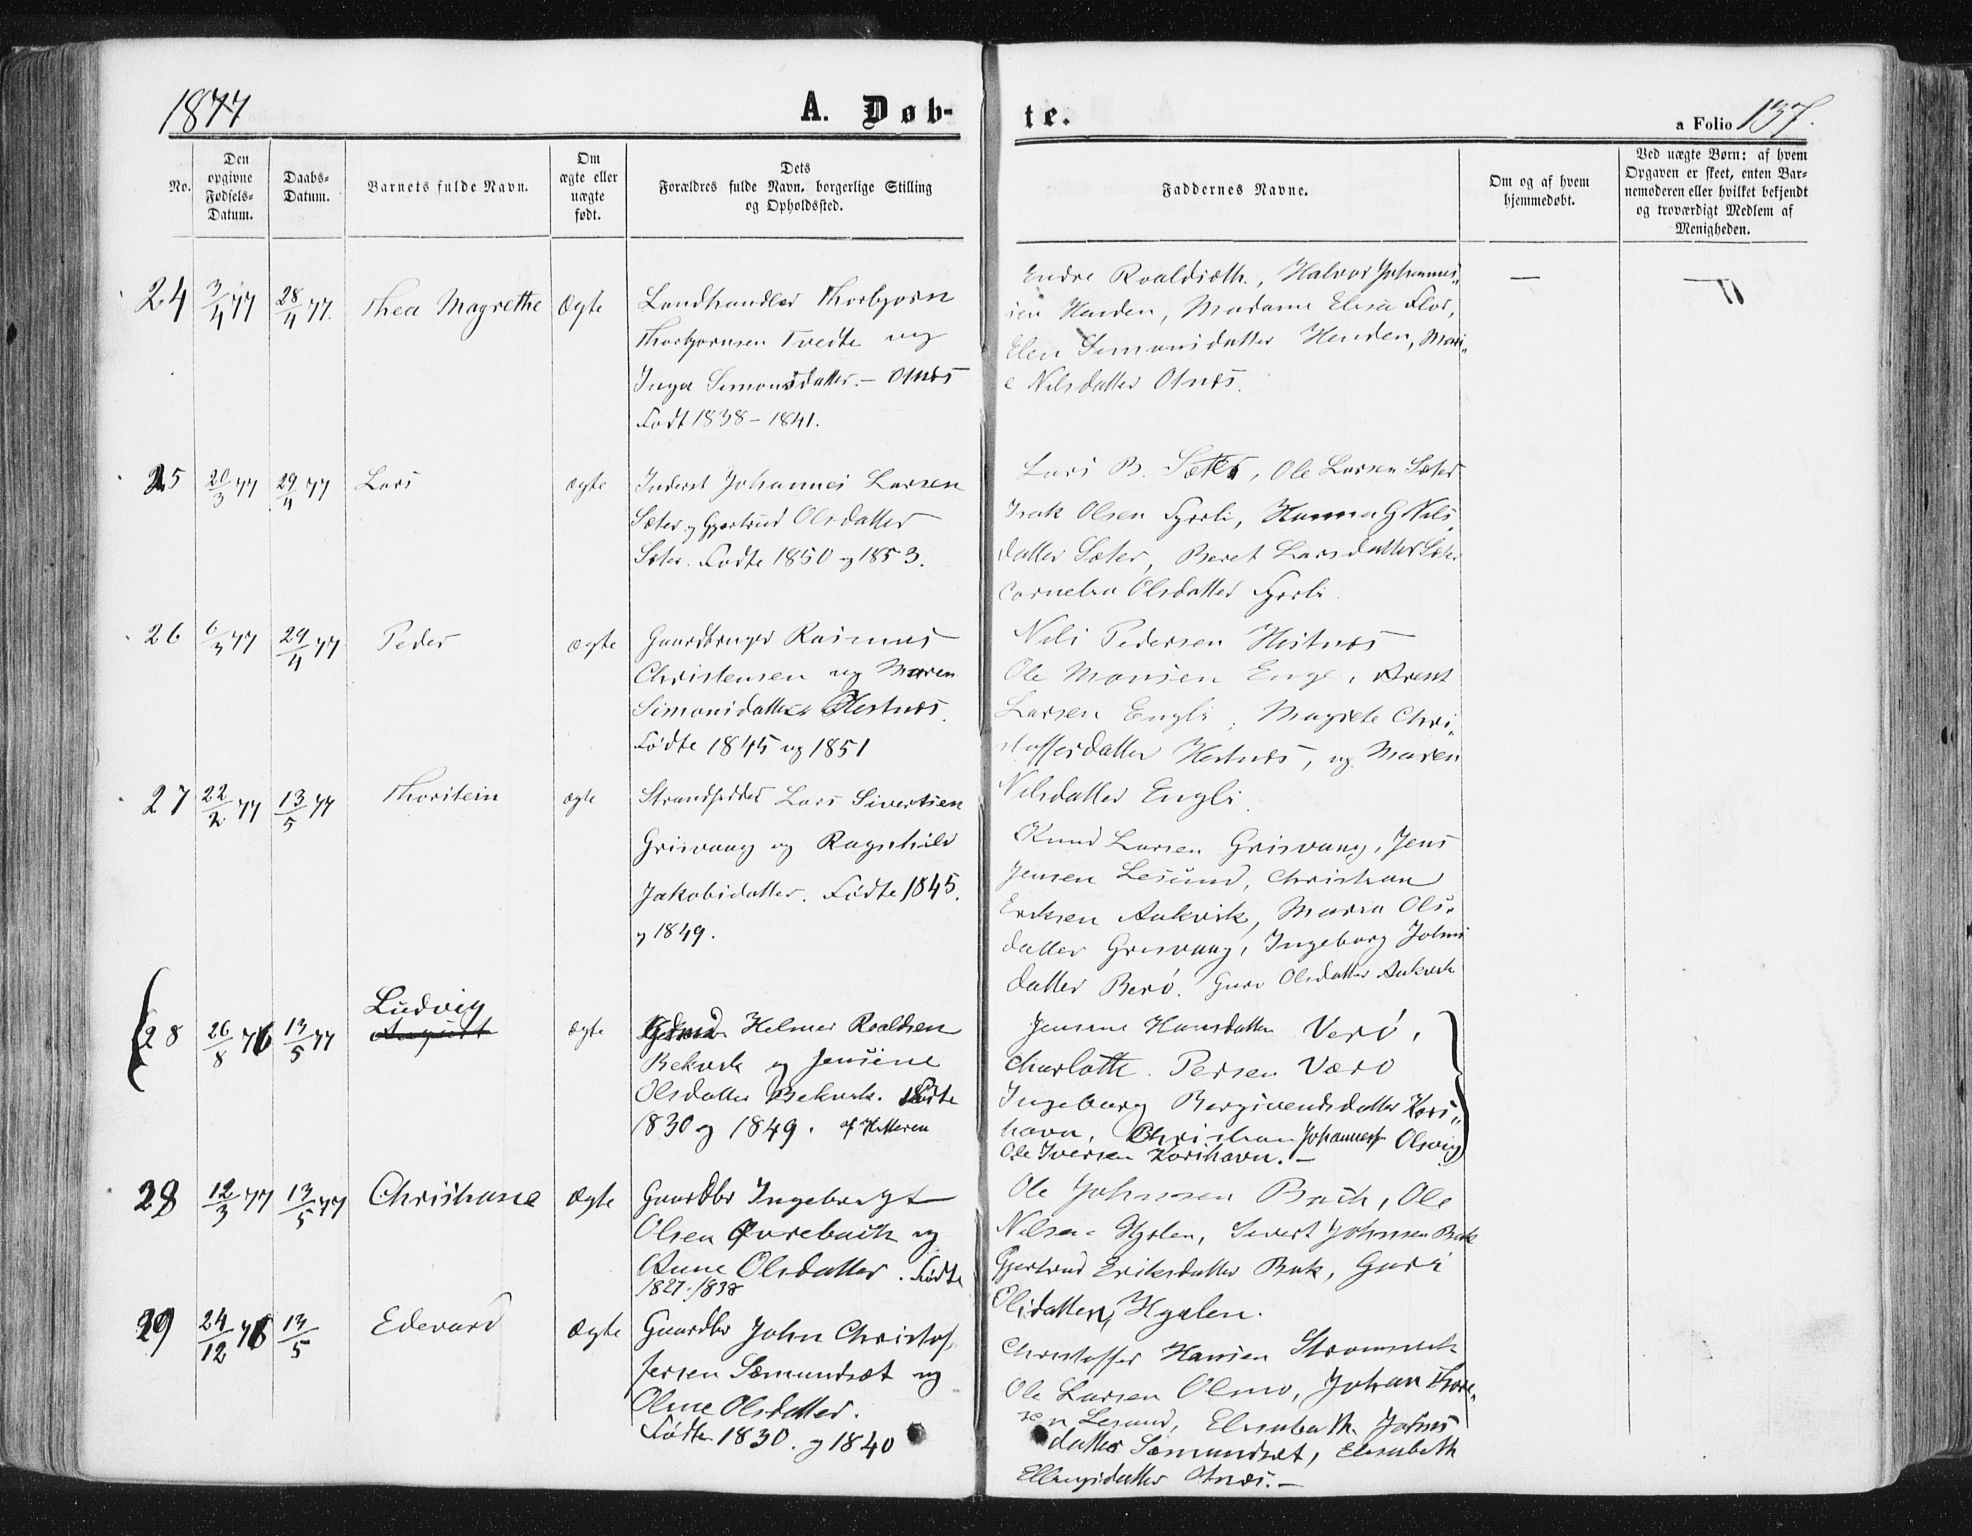 1877
A. Døb-
te.
a Folio 137.
No.
Den opgivne Fødsels-Datum.
Daabs-Datum.
Barnets fulde Navn.
Om ægte eller uægte født.
Dets Forældres fulde Navn, borgerlige Stilling og Opholdssted.
Faddernes Navne.
Om og af hvem hjemmedøbt.
Ved uægte Børn: af hvem Opgaven er skeet, enten Barnemoderen eller hvilket bekjendt og troværdigt Medlem af Menigheden.
24 3/4 77 28/4 77. Thea Magrethe Ægte
Landhandler Thorbjørn
Thorbjørnsen Tvedte og
Inga Simonsdatter. – Otnes
Født 1838 – 1841.
Endre Roaldsæth, Halvor Johannes-
sen Henden, Madame Elisa Flor,
Elen Simonsdatter Henden, Mari-
e Nilsdatter Otnes.
—
25 20/3 77 29/4 77 Lars ægte
Inderst Johannes Larsen
Sæter og Gjertrud Olsdatter
Sæter. Fødte 1850 og 1853.
Lars B. Sæter, Ole Larsen Sæter
Isak Olsen Fjærli, Hanna G Nils-
datter Sæter, Beret Larsdatter Sæter
Cornelia Olsdatter Fjærli.
26 6/3 77 29/4 77 Peder ægte
Gaardbruger Rasmus
Christensen og Maren
Simonsdatter Hestnes.
Fødte 1845 og 1851
Nils Pedersen Hestnes
Ole Monsen Enge, Arent
Larsen Engli, Magrete Chri-
stoffersdatter Hestnes, og Maren
Nilsdatter Engli.
27 22/2 77 13/5 77 Thorstein ægte
Strandsidder Lars Sivertsen
Grisvaag og Ragnhild
Jakobsdatter. Fødte 1845.
og 1849.
Knud Larsen Grisvaag, Jens
Jensen Lesund, Christian
Eriksen Aakvik, Maria Ols-
datter Grisvaag, Ingeborg Johns
datter Berø. Guro Olsdatter Aakvik
28 26/8 76 13/5 77 Ludvig ægte
Helmer Roaldsen
Bekvik og Jensine
Olsdatter Bekvik. Fødte
1830 og 1849. af Hitteren
Jensine Hansdatter Verø,
Charlotte Persen Værø
Ingeborg Bergsvendsdatter Kors-
havn, Christian Johanness. Olsvig
Ole Iversen Korshavn. –
28 12/3 77 13/5 77 Christiane Ægte
Gaardbr Ingebrigt
Olsen Øvrebach og
Anne Olsdatter. Fødte
1827. 1838
Ole Johnsen Bach, Ole
Nelsen Hjelen, Sivert Johnsen Bak
Gjertrud Eriksdatter Bak, Guri
Olsdatter, Hjelen.
29 24/12 76 13/5 Edevard Ægte
Gaardbr John Christof-
fersen Sæmundsæt og
Oline Olsdatter.
Fødte 1830. og 1840
Christoffer Hansen Strømsvik
Ole Larsen Olmo, Johan Thore-
sen Lesund, Elisabeth Johns
datter Sæmundsæt, Elisabeth
Ellingsdatter Otnæs. –